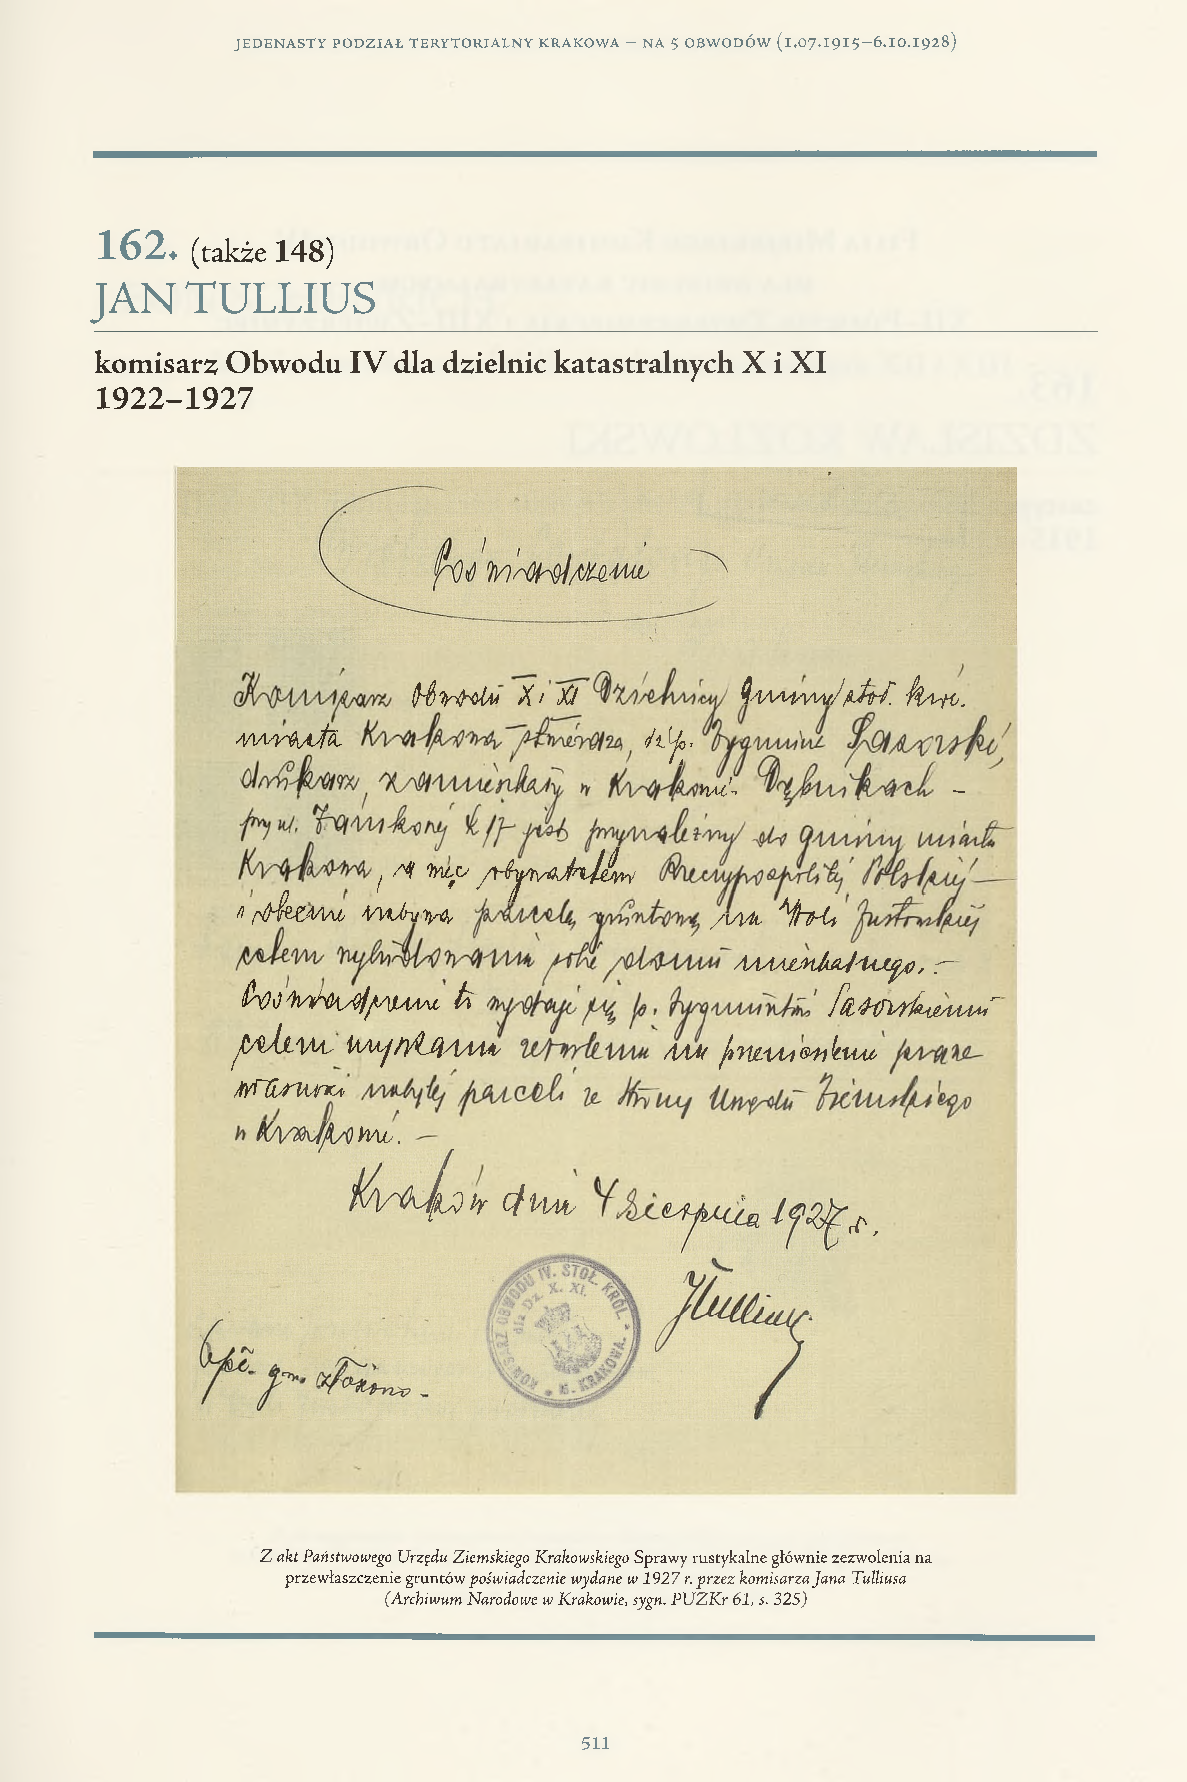 JEDENASTY PODZIAŁ TERYTORIALNY KRAKOWA – NA 5 OBWODÓW (1.07.1915–6.10.1928)
162. (także 148)
JAN TULLIUS
komisarz Obwodu IV dla dzielnic katastralnych X i XI
1922–1927
Poświadczenie
Komisarz Obwodu X i XI Dzielnicy Gminy stoł. król.
miasta Krakowa stwierdza, że p. Zygmunt Sasorski,
drukarz, zamieszkały w Krakowie-Dębnikach –
przy ul. Zamkowej 17 jest przynależny do gminy miasta
Krakowa, a więc obywatelem Rzeczypospolitej Polskiej –
i obecnie nabywa parcelę gruntową na Woli Justowskiej
celem wybudowania sobie domu mieszkalnego. –
Poświadczenie to wydaje się p. Zygmuntowi Sasorskiemu
celem uzyskania zezwolenia na przeniesienie prawa
własności nabytej parceli ze strony Urzędu Ziemskiego
w Krakowie. –
Kraków dnia 4 Sierpnia 1927 r.
KOMISARZ OBWODU IV. STOŁ. KRÓL. M. KRAKOWA.
dla Dz. X. XI.
JTullius
złożono –
Z akt Państwowego Urzędu Ziemskiego Krakowskiego Sprawy rustykalne głównie zezwolenia na
przewłaszczenie gruntów poświadczenie wydane w 1927 r. przez komisarza Jana Tulliusa
(Archiwum Narodowe w Krakowie, sygn. PUZKr 61, s. 325)
511